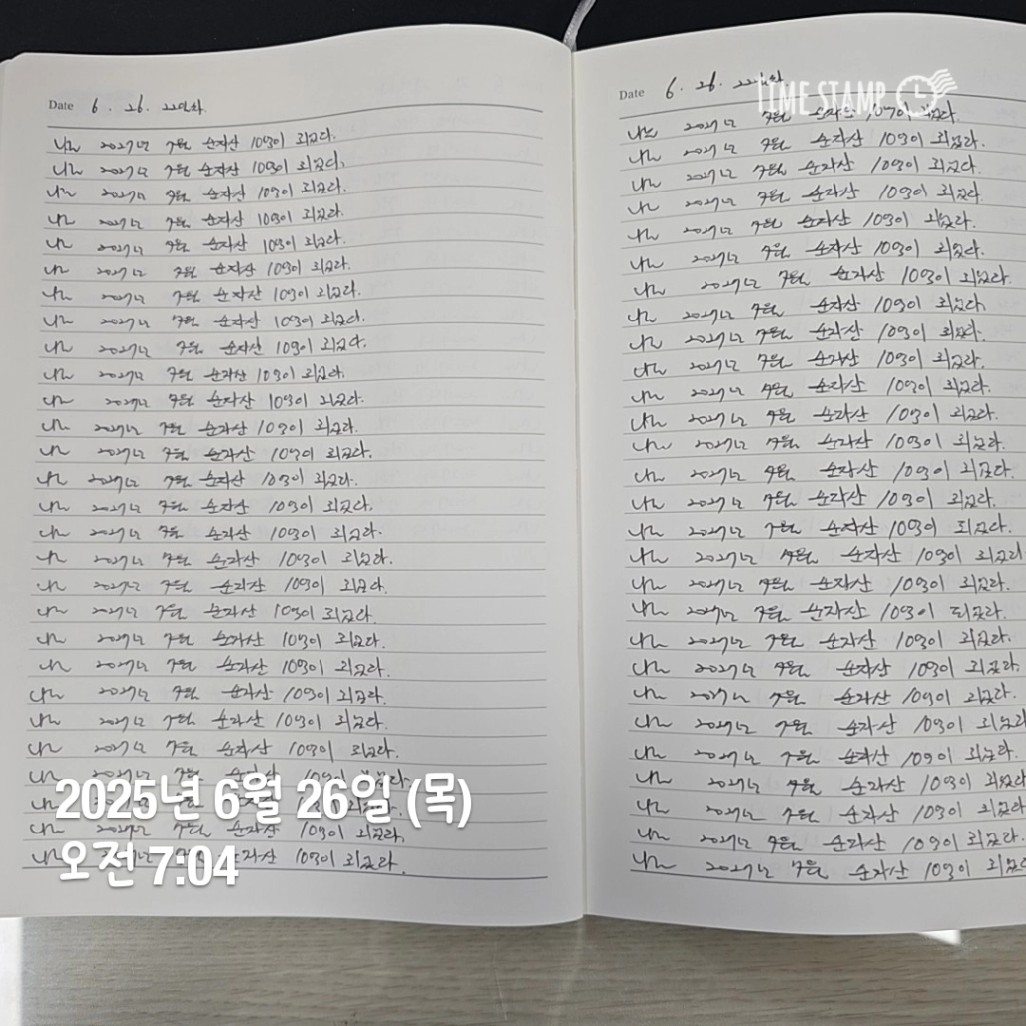 Date 6. 26. 22일차.
나는 2027년 7월 순자산 10억이 되었다.
나는 2027년 7월 순자산 10억이 되었다.
나는 2027년 7월 순자산 10억이 되었다.
나는 2027년 7월 순자산 10억이 되었다.
나는 2027년 7월 순자산 10억이 되었다.
나는 2027년 7월 순자산 10억이 되었다.
나는 2027년 7월 순자산 10억이 되었다.
나는 2027년 7월 순자산 10억이 되었다.
나는 2027년 7월 순자산 10억이 되었다.
나는 2027년 7월 순자산 10억이 되었다.
나는 2027년 7월 순자산 10억이 되었다.
나는 2027년 7월 순자산 10억이 되었다.
나는 2027년 7월 순자산 10억이 되었다.
나는 2027년 7월 순자산 10억이 되었다.
나는 2027년 7월 순자산 10억이 되었다.
나는 2027년 7월 순자산 10억이 되었다.
나는 2027년 7월 순자산 10억이 되었다.
나는 2027년 7월 순자산 10억이 되었다.
나는 2027년 7월 순자산 10억이 되었다.
나는 2027년 7월 순자산 10억이 되었다.
나는 2027년 7월 순자산 10억이 되었다.
나는 2027년 7월 순자산 10억이 되었다.
나는 2027년 7월 순자산 10억이 되었다.
나는 2027년 7월 순자산 10억이 되었다.
나는 2027년 7월 순자산 10억이 되었다.
나는 순자산 10억이 되었다.
나는 2027년 7월 순자산 10억이 되었다.
나는 순자산 10억이 되었다.
2025년 6월 26일 (목)
오전 7:04
Date 6. 26. 22일차
TIME STAMP
나는 2027년 7월 순자산 10억이 되었다.
나는 2027년 7월 순자산 10억이 되었다.
나는 2027년 7월 순자산 10억이 되었다.
나는 2027년 7월 순자산 10억이 되었다.
나는 2027년 7월 순자산 10억이 되었다.
나는 2027년 7월 순자산 10억이 되었다.
나는 2027년 7월 순자산 10억이 되었다.
나는 2027년 7월 순자산 10억이 되었다.
나는 2027년 7월 순자산 10억이 되었다.
나는 2027년 7월 순자산 10억이 되었다.
나는 2027년 7월 순자산 10억이 되었다.
나는 2027년 7월 순자산 10억이 되었다.
나는 2027년 7월 순자산 10억이 되었다.
나는 2027년 7월 순자산 10억이 되었다.
나는 2027년 7월 순자산 10억이 되었다.
나는 2027년 7월 순자산 10억이 되었다.
나는 2027년 7월 순자산 10억이 되었다
나는 2027년 7월 순자산 10억이 되었다.
나는 2027년 7월 순자산 10억이 되었다.
나는 2027년 7월 순자산 10억이 되었다.
나는 2027년 7월 순자산 10억이 되었다.
나는 2027년 7월 순자산 10억이 되었다.
나는 2027년 7월 순자산 10억이 되었다
나는 2027년 7월 순자산 10억이 되었다.
나는 2027년 7월 순자산 10억이 되었다
나는 2027년 7월 순자산 10억이 되었다.
나는 2027년 7월 순자산 10억이 되었다.
나는 2027년 7월 순자산 10억이 되었다